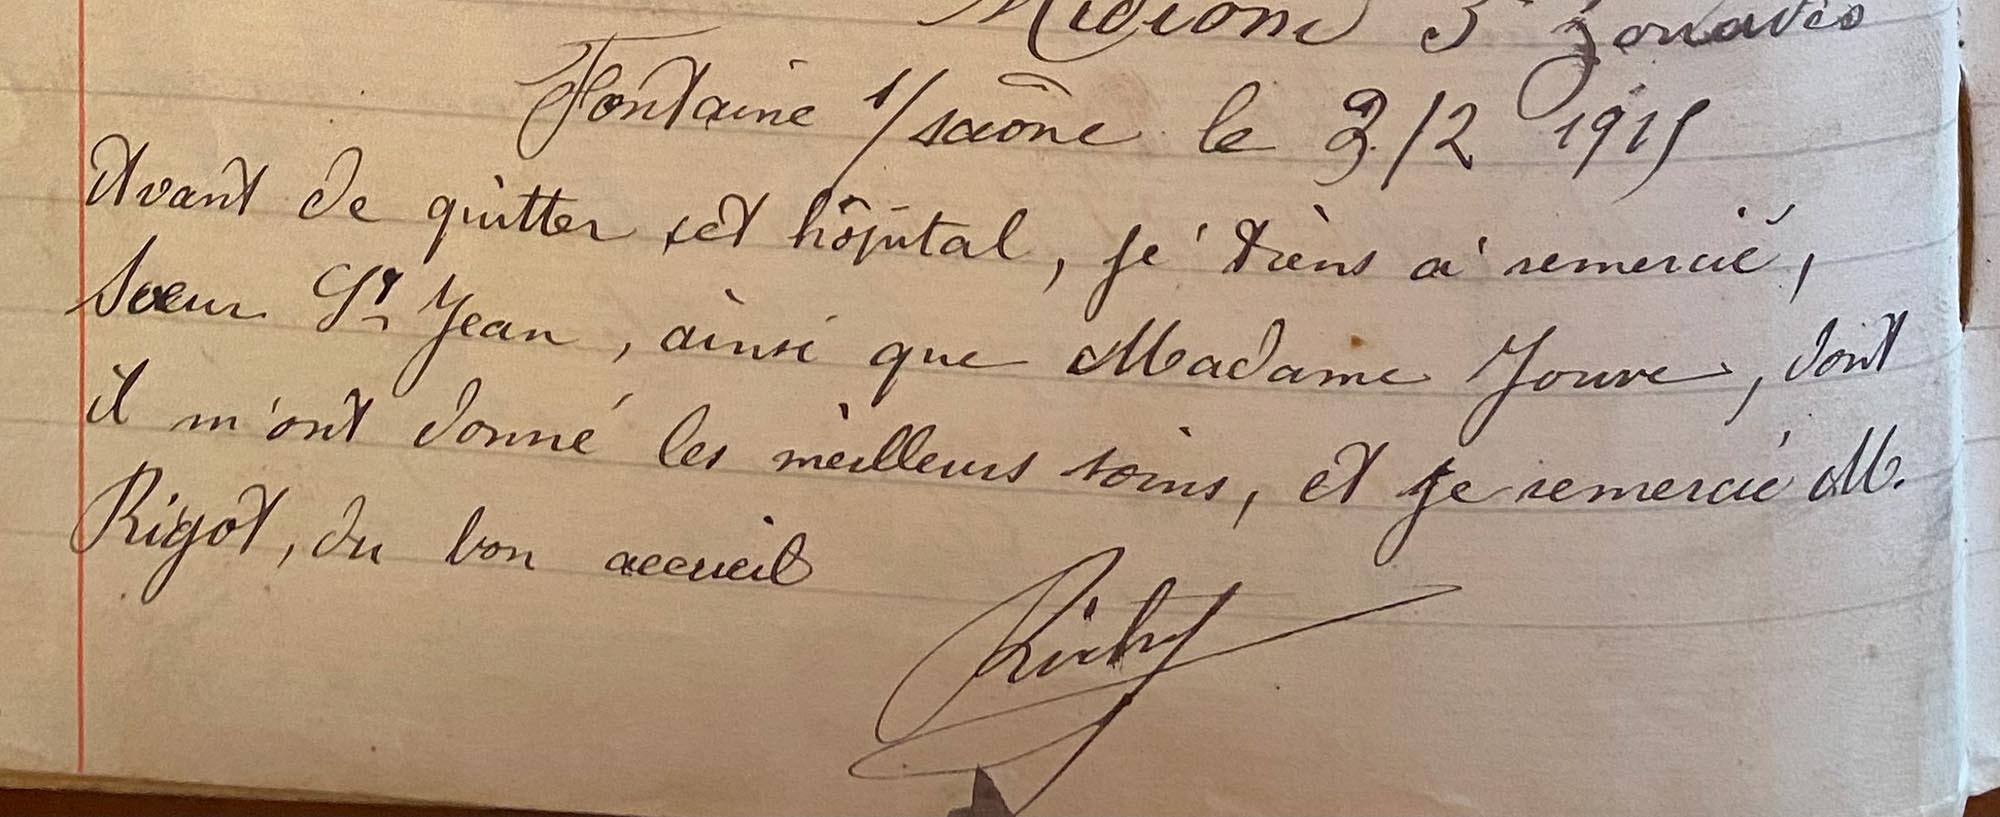 Midioni 3e Zouaves
Fontaine s/saône le 3/2 1915
Avant de quitter set hôpital, je tiens à remercié,
Soeur St Jean, ainsi que Madame Jouve, dont
il m'ont donné les meilleurs soins, et je remercié M.
Rigot, du bon accueil